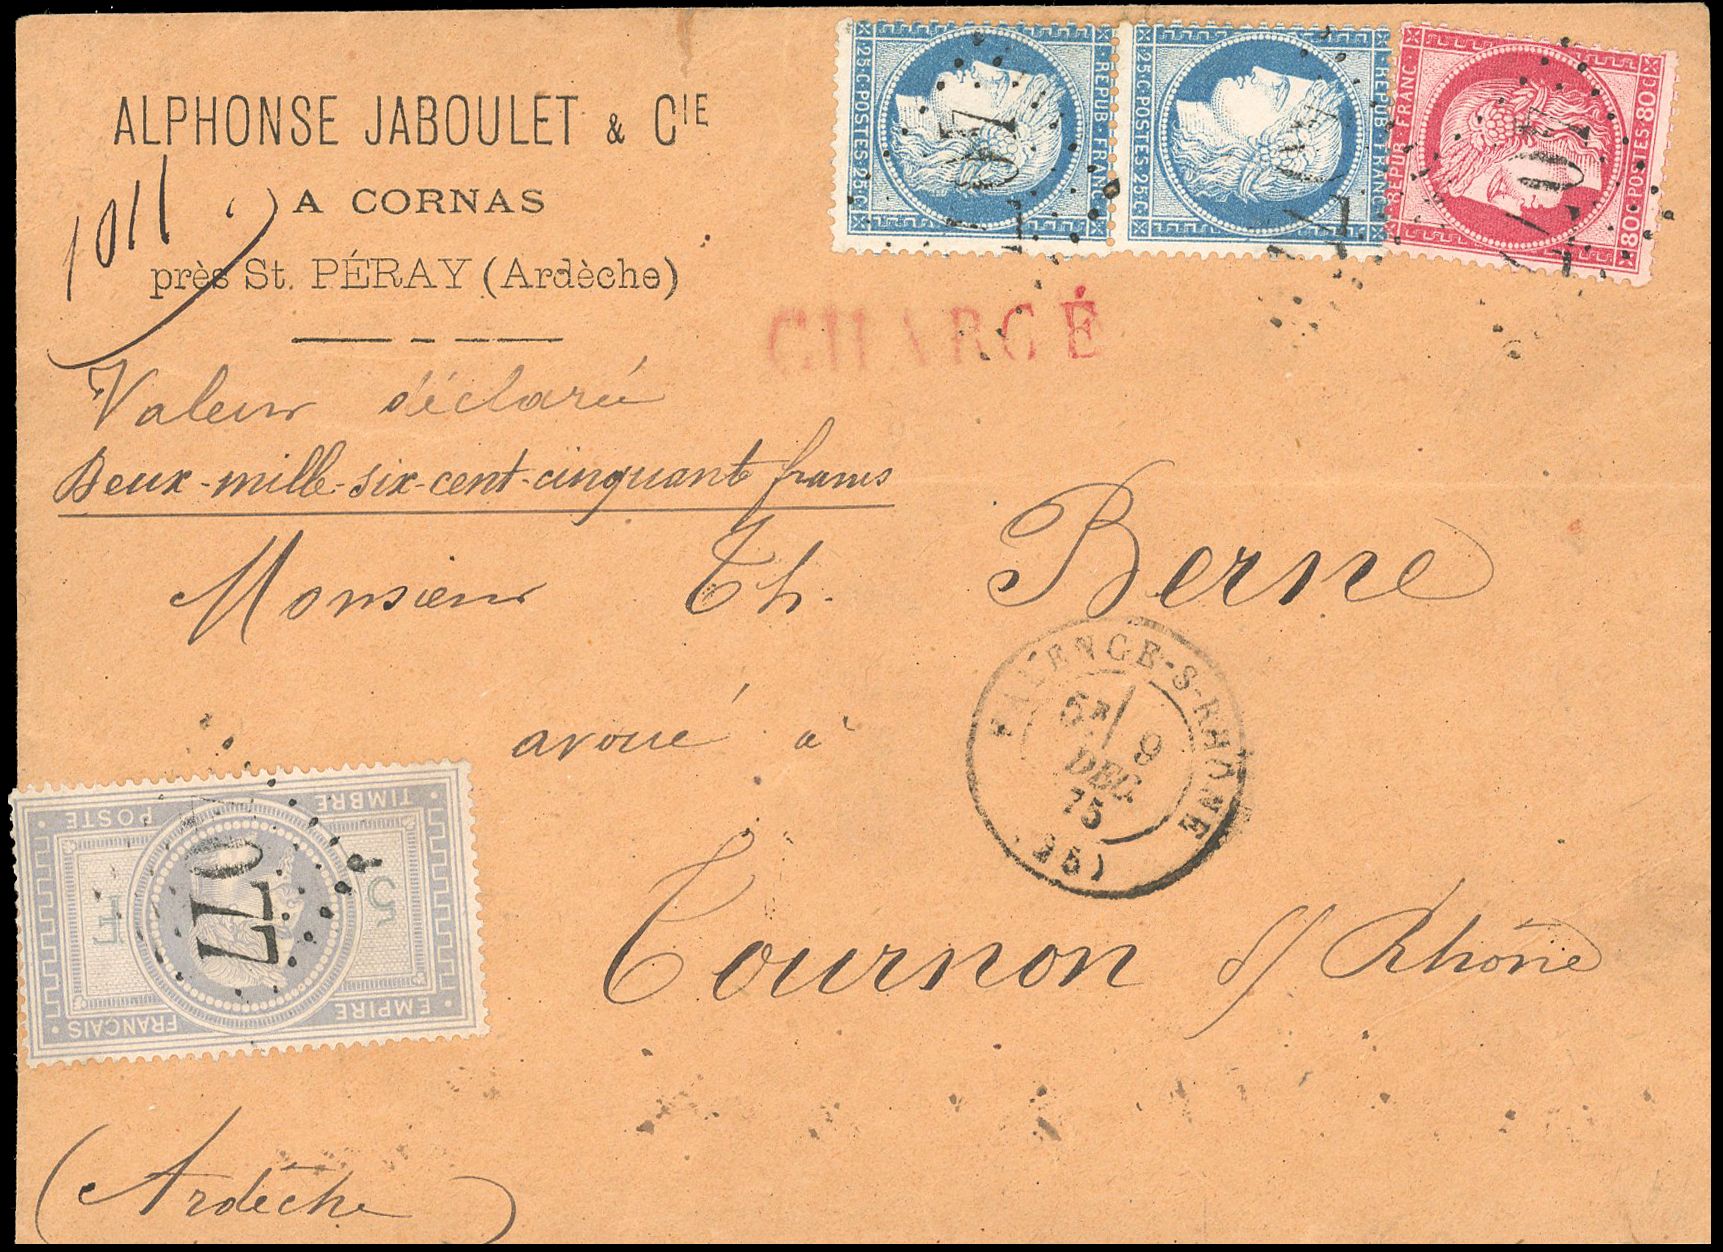 ALPHONSE JABOULET & CIE
A CORNAS
près St. PÉRAY (Ardèche)
1011
CHARGÉ
Valeur déclarée
Deux-mille-six-cent-cinquante francs
Monsieur Th. Berne
avoué à
Tournon s/ Rhône
(Ardèche)
VALENCE-S-RHÔNE
9
DEC.
75
25·C·POSTES·25·C
REPUB·FRANC
25·C·POSTES·25·C
REPUB·FRANC
REPUB·FRANC
80C·POSTES·80C
4077
TIMBRE POSTE
5 F
EMPIRE FRANÇAIS